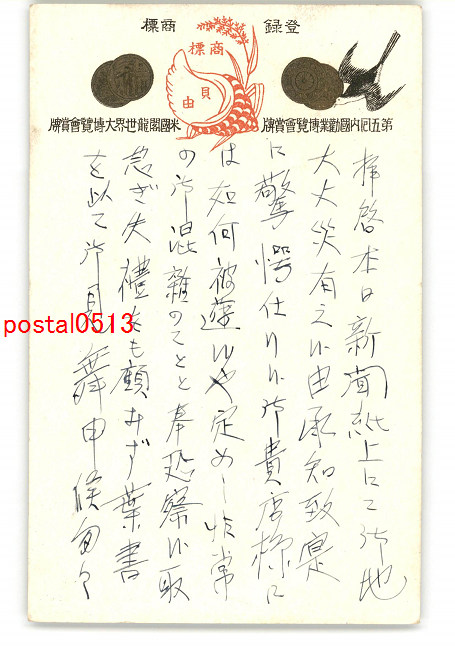 登録商標
商標
貝由
第五回内國勸業博覽會賞牌
米國閣龍世界大博覽會賞牌
拝啓本日新聞紙上にて御地
大火災有之候由承知致寔
に驚愕仕り候御貴店様に
は如何被遊候や定めし非常
の御混雑のことと奉恐察候取
急ぎ失禮をも顧みず葉書
を以て御見舞申候匆々
postal0513